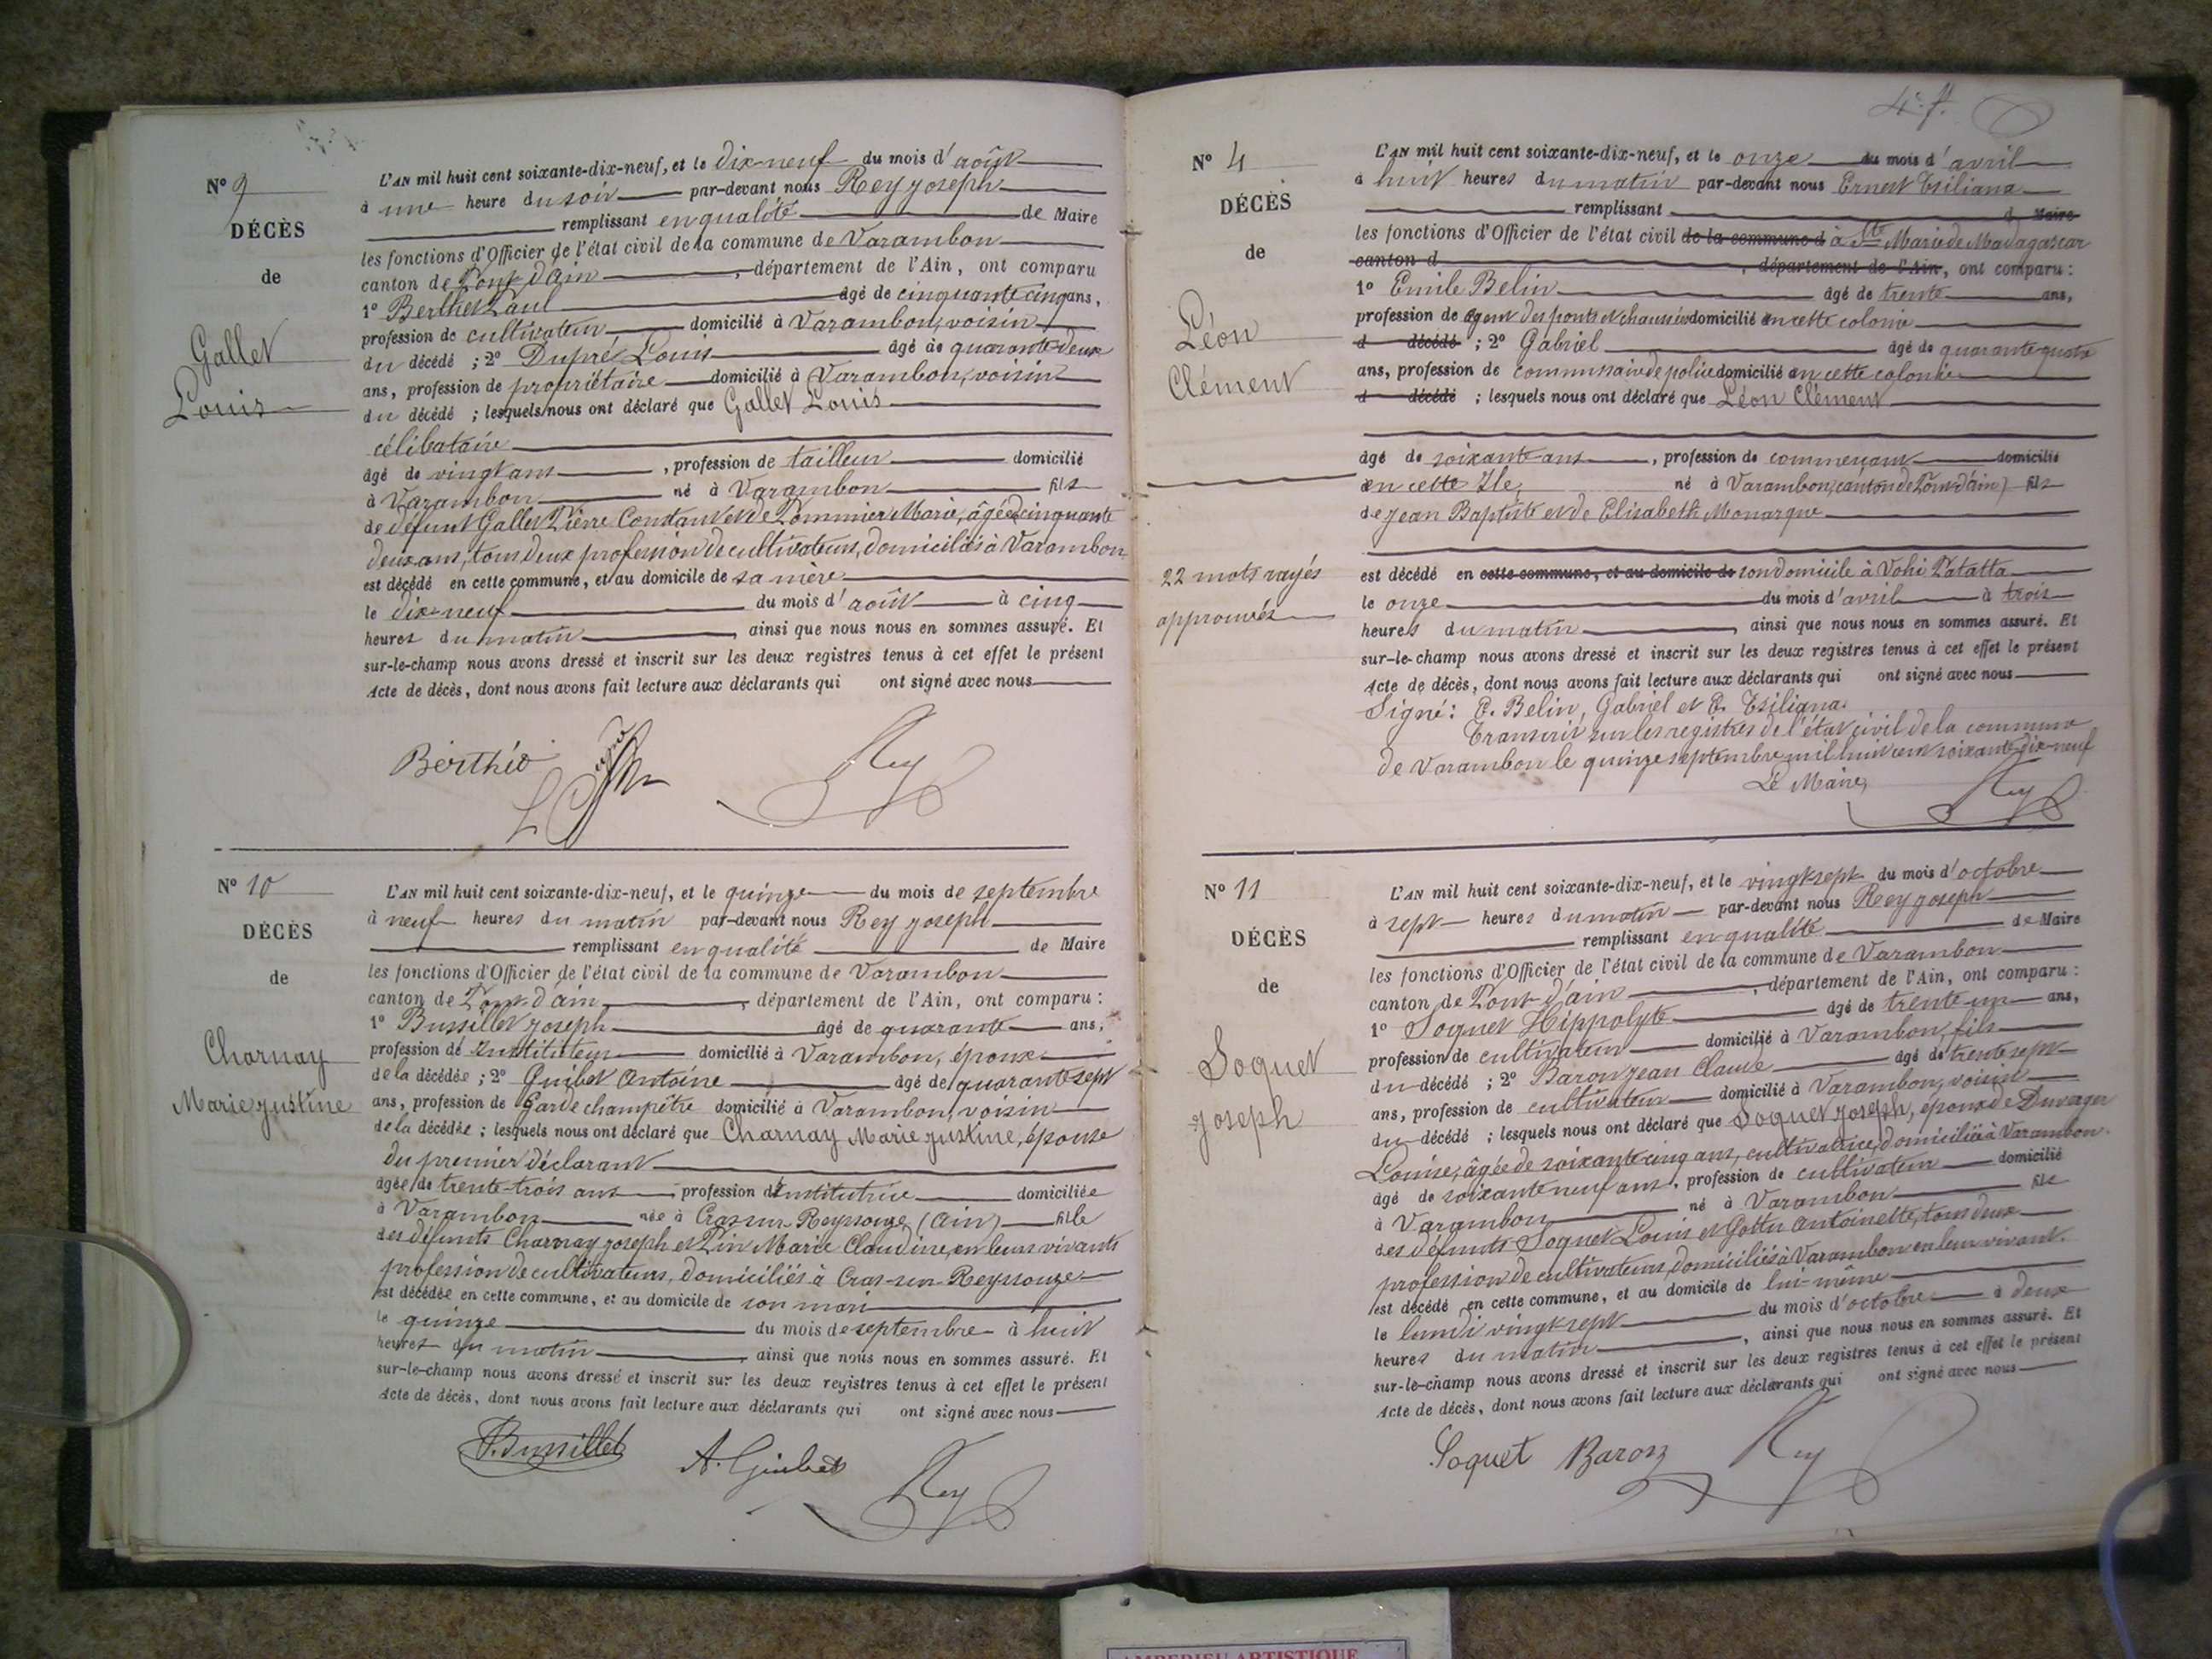 N° 9
DÉCÈS
de
Gallet
Louis
L'AN mil huit cent soixante-dix-neuf, et le dix-neuf du mois d'août
à une heure du soir par-devant nous Rey Joseph
remplissant en qualité de Maire
les fonctions d'Officier de l'état civil de la commune de Varambon
canton de Pont d'Ain, département de l'Ain, ont comparu
1° Berthet Paul âgé de cinquante cinq ans,
profession de cultivateur domicilié à Varambon, voisin
du décédé ; 2° Dupré Louis âgé de quarante-deux
ans, profession de propriétaire domicilié à Varambon, voisin
du décédé ; lesquels nous ont déclaré que Gallet Louis
célibataire
âgé de vingt ans, profession de tailleur domicilié
à Varambon né à Varambon fils
de défunt Gallet Pierre Constant et de Pommier Marie, âgée de cinquante
deux ans, tous deux profession de cultivateurs, domiciliés à Varambon
est décédé en cette commune, et au domicile de sa mère
le dix-neuf du mois d'août à cinq
heures du matin, ainsi que nous nous en sommes assuré. Et
sur-le-champ nous avons dressé et inscrit sur les deux registres tenus à cet effet le présent
Acte de décès, dont nous avons fait lecture aux déclarants qui ont signé avec nous
Rey
N° 10
DÉCÈS
de
Charnay
Marie Justine
L'AN mil huit cent soixante-dix-neuf, et le quinze du mois de septembre
à neuf heures du matin par-devant nous Rey Joseph
remplissant en qualité de Maire
les fonctions d'Officier de l'état civil de la commune de Varambon
canton de Pont d'ain, département de l'Ain, ont comparu :
1° Bussillet Joseph âgé de quarante ans,
profession de Instituteur domicilié à Varambon, époux
de la décédée ; 2° Guibet Antoine âgé de quarante sept
ans, profession de Garde champêtre domicilié à Varambon, voisin
de la décédée ; lesquels nous ont déclaré que Charnay Marie Justine, épouse
du premier déclarant
âgée de trente-trois ans, profession d'Institutrice domiciliée
à Varambon née à Cras-sur-Reyssouze (Ain) fille
des défunts Charnay Joseph et Pin Marie Claudine, en leurs vivants
profession de cultivateurs, domiciliés à Cras-sur-Reyssouze
est décédée en cette commune, et au domicile de son mari
le quinze du mois de septembre à huit
heures du matin, ainsi que nous nous en sommes assuré. Et
sur-le-champ nous avons dressé et inscrit sur les deux registres tenus à cet effet le présent
Acte de décès, dont nous avons fait lecture aux déclarants qui ont signé avec nous
J. Bussillet A. Guibet Rey
N° 4
DÉCÈS
de
Léon
Clément
22 mots rayés
approuvés
L'AN mil huit cent soixante-dix-neuf, et le onze du mois d'avril
à huit heures du matin par-devant nous Ernest Tsiliana
remplissant d Maire
les fonctions d'Officier de l'état civil de la commune d à Ste Marie de Madagascar
canton d, département de l'Ain, ont comparu :
1° Emile Belin âgé de trente ans,
profession de Agent des ponts et chaussées domicilié en cette colonie
d décédé ; 2° Gabriel âgé de quarante quatre
ans, profession de commissaire de police domicilié en cette colonie
d décédé ; lesquels nous ont déclaré que Léon Clément
âgé de soixante ans, profession de commerçant domicilié
en cette Ile, né à Varambon, canton de Pont d'ain) fils
de Jean Baptiste et de Elisabeth Monarque
est décédé en cette commune, et au domicile de son domicile à Vohi Patatta
le onze du mois d'avril à trois
heures du matin, ainsi que nous nous en sommes assuré. Et
sur-le-champ nous avons dressé et inscrit sur les deux registres tenus à cet effet le présent
Acte de décès, dont nous avons fait lecture aux déclarants qui ont signé avec nous
Signé : E. Belin, Gabriel et E. Tsiliana.
Transcrit sur les registres de l'état civil de la commune
de Varambon le quinze septembre mil huit cent soixante dix-neuf
Le Maire,
Rey
N° 11
DÉCÈS
de
Soquet
Joseph
L'AN mil huit cent soixante-dix-neuf, et le vingt sept du mois d'octobre
à sept heures du matin par-devant nous Rey Joseph
remplissant en qualité de Maire
les fonctions d'Officier de l'état civil de la commune de Varambon
canton de Pont d'ain, département de l'Ain, ont comparu :
1° Soquet Hippolyte âgé de trente un ans,
profession de cultivateur domicilié à Varambon, fils
du décédé ; 2° Baron Jean Claude âgé de trente sept
ans, profession de cultivateur domicilié à Varambon, voisin
du décédé ; lesquels nous ont déclaré que Soquet Joseph, époux de Duverger
Louise, âgée de soixante cinq ans, cultivatrice, domiciliée à Varambon
âgé de soixante neuf ans, profession de cultivateur domicilié
à Varambon né à Varambon fils
des défunts Soquet Louis et Antoinette, tous deux
profession de cultivateurs, domiciliés à Varambon en leur vivant.
est décédé en cette commune, et au domicile de lui-même
le lundi vingt sept du mois d'octobre à deux
heures du matin, ainsi que nous nous en sommes assuré. Et
sur-le-champ nous avons dressé et inscrit sur les deux registres tenus à cet effet le présent
Acte de décès, dont nous avons fait lecture aux déclarants qui ont signé avec nous
Soquet Baron Rey